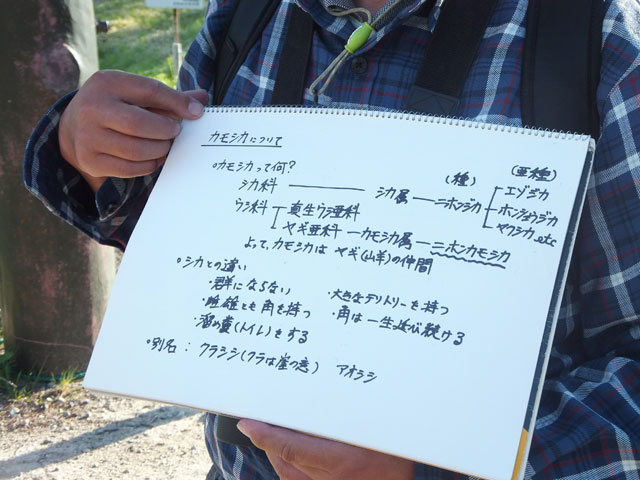 カモシカについて
○カモシカって何?
(種) (亜種)
シカ科 ─── シカ属 ─ ニホンジカ エゾジカ
ホンシュウジカ
ヤクシカ etc
ウシ科 真生ウシ亜科
ヤギ亜科 ─ カモシカ属 ─ ニホンカモシカ
よって、カモシカは ヤギ(山羊)の仲間
○シカとの違い
・群にならない ・大きなテリトリーを持つ
・雌雄とも角を持つ ・角は一生延び続ける
・溜め糞(トイレ)をする
○別名: クラシシ(クラは崖の意) アオシシ